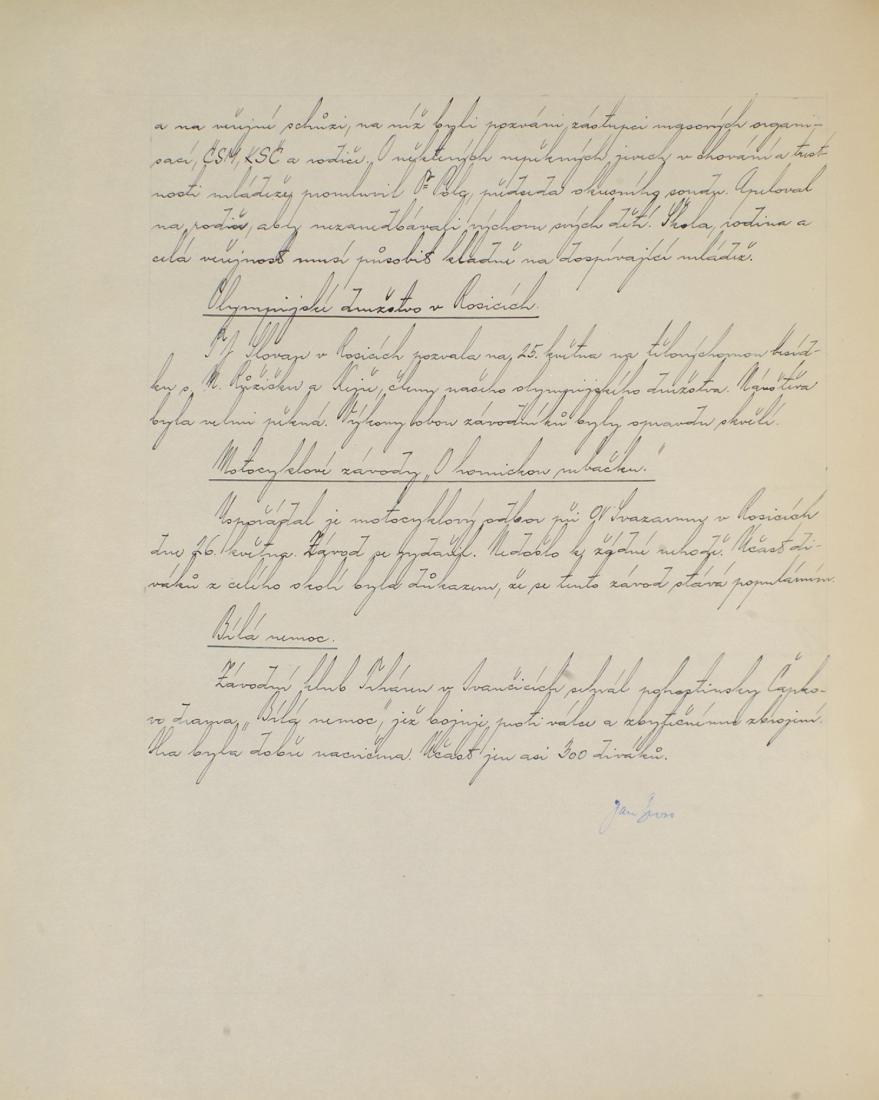 a na veřejné schůzi, na níž byli pozváni zástupci masových organi-
sací, ČSM, KSČ a rodiče. O některých nepěkných jevech v chování a trest-
nosti mládeže promluvil Dr Polg, předseda okresního soudu. Apeloval
na rodiče, aby nezanedbávali výchovu svých dětí. Škola, rodina a
celá veřejnost musí působit kladně na dospívající mládež.
Olympijské družstvo v Rosicích.
TJ Slovan v Rosicích pozvala na 25. května na tělovýchovnou besíd-
ku s. M. Růžičku a Kejře, členy našeho olympijského družstva. Návštěva
byla velmi pěkná. Výkony obou závodníků byly opravdu skvělé.
Motocyklové závody „O hornickou rubačku."
Uspořádal je motocyklový odbor při OV Svazarmu v Rosicích
dne 26. května. Závod se vydařil. Nedošlo k žádné nehodě. Účast di-
váků z celého okolí byla důkazem, že se tento závod stává populárním.
Bílá nemoc.
Závodní klub Tiháren v Ivančicích sehrál pohostinsky Čapko-
vo drama „Bílá nemoc", jež bojuje proti válce a zbytečnému zbrojení.
Hra byla dobře nacvičena. Účast jen asi 300 diváků.
Jan